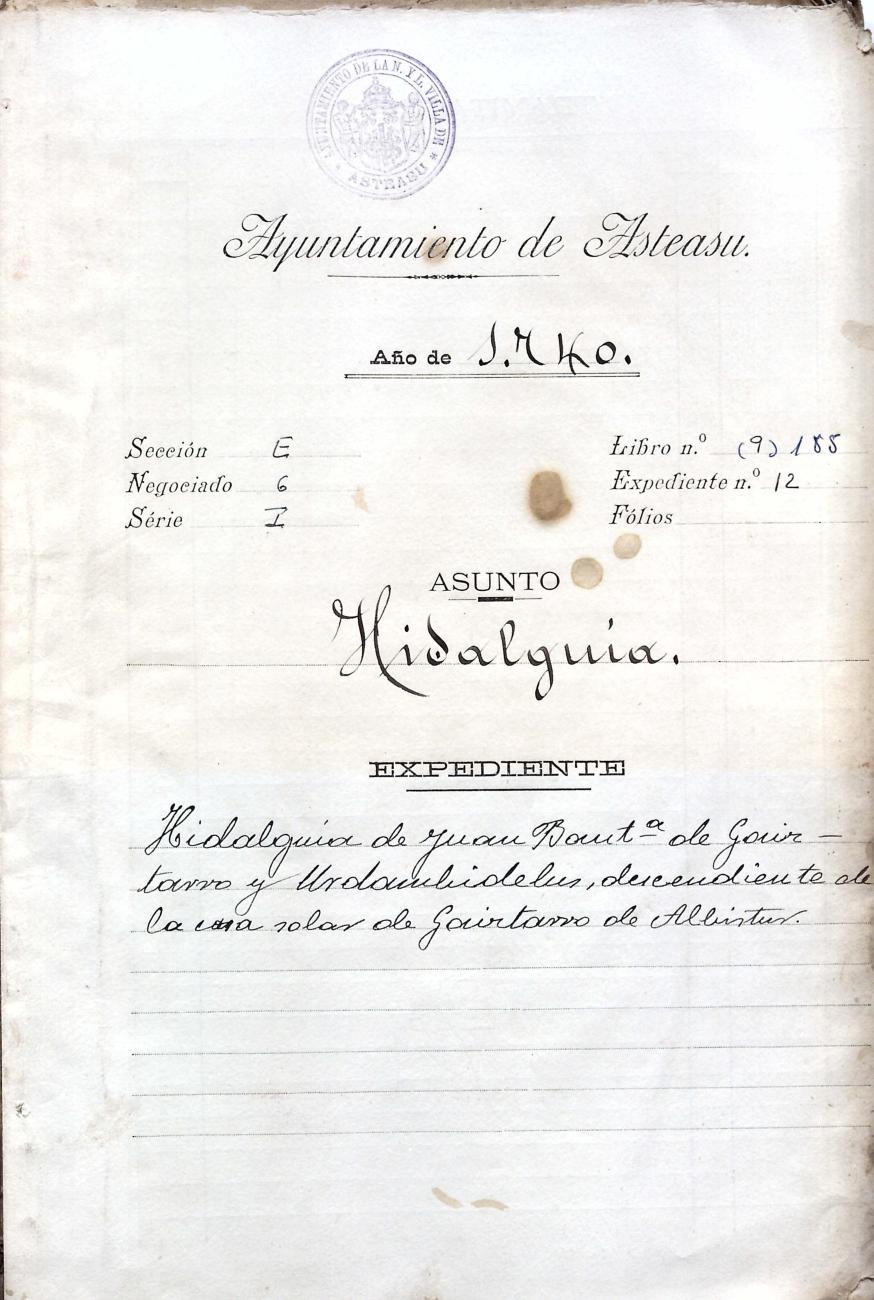 AYUNTAMIENTO DE LA N. Y L. VILLA DE
* ASTEASU *
Ayuntamiento de Asteasu.
Año de 1.740.
Sección E
Negociado 6
Série I
Libro n.º (9) 188
Expediente n.º 12
Fólios
ASUNTO
Hidalguía.
EXPEDIENTE
Hidalguía de Juan Baut.ª de Goir-
tarro y Urdambidelus, descendiente de
la casa solar de Goirtarro de Albistur.